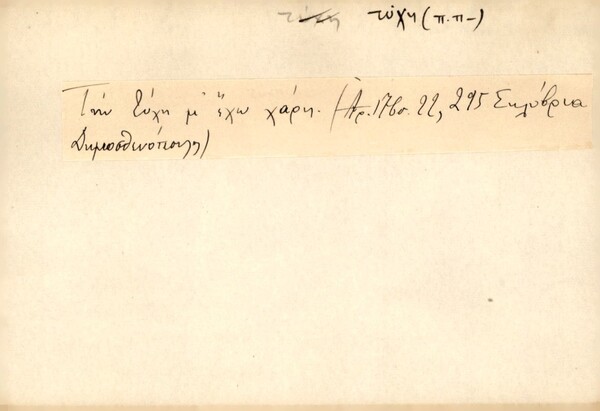 τύχη τύχη (π.π-)
Τήν τύχη μ' ἔχω χάρη. (Ἀρ. 1781. 22, 295 Σηλύβρια
Δημοσθενόπουλη)